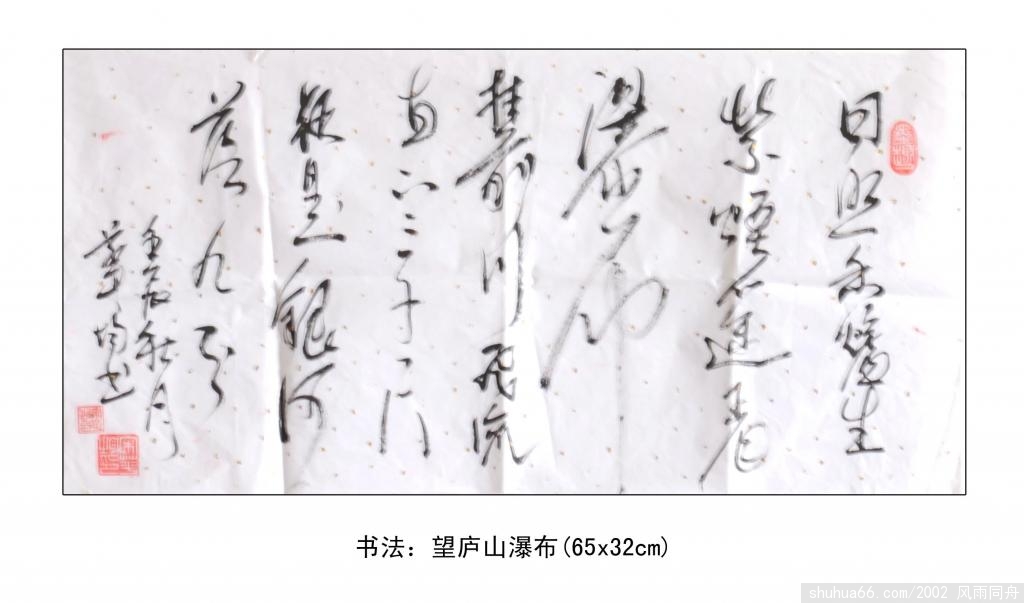 日照香爐生
紫煙遥看
瀑布
挂前川飛流
直下三千尺
疑是銀河
落九天
壬辰秋月
书
书法：望庐山瀑布(65x32cm)
shuhua66.com/2002 风雨同舟